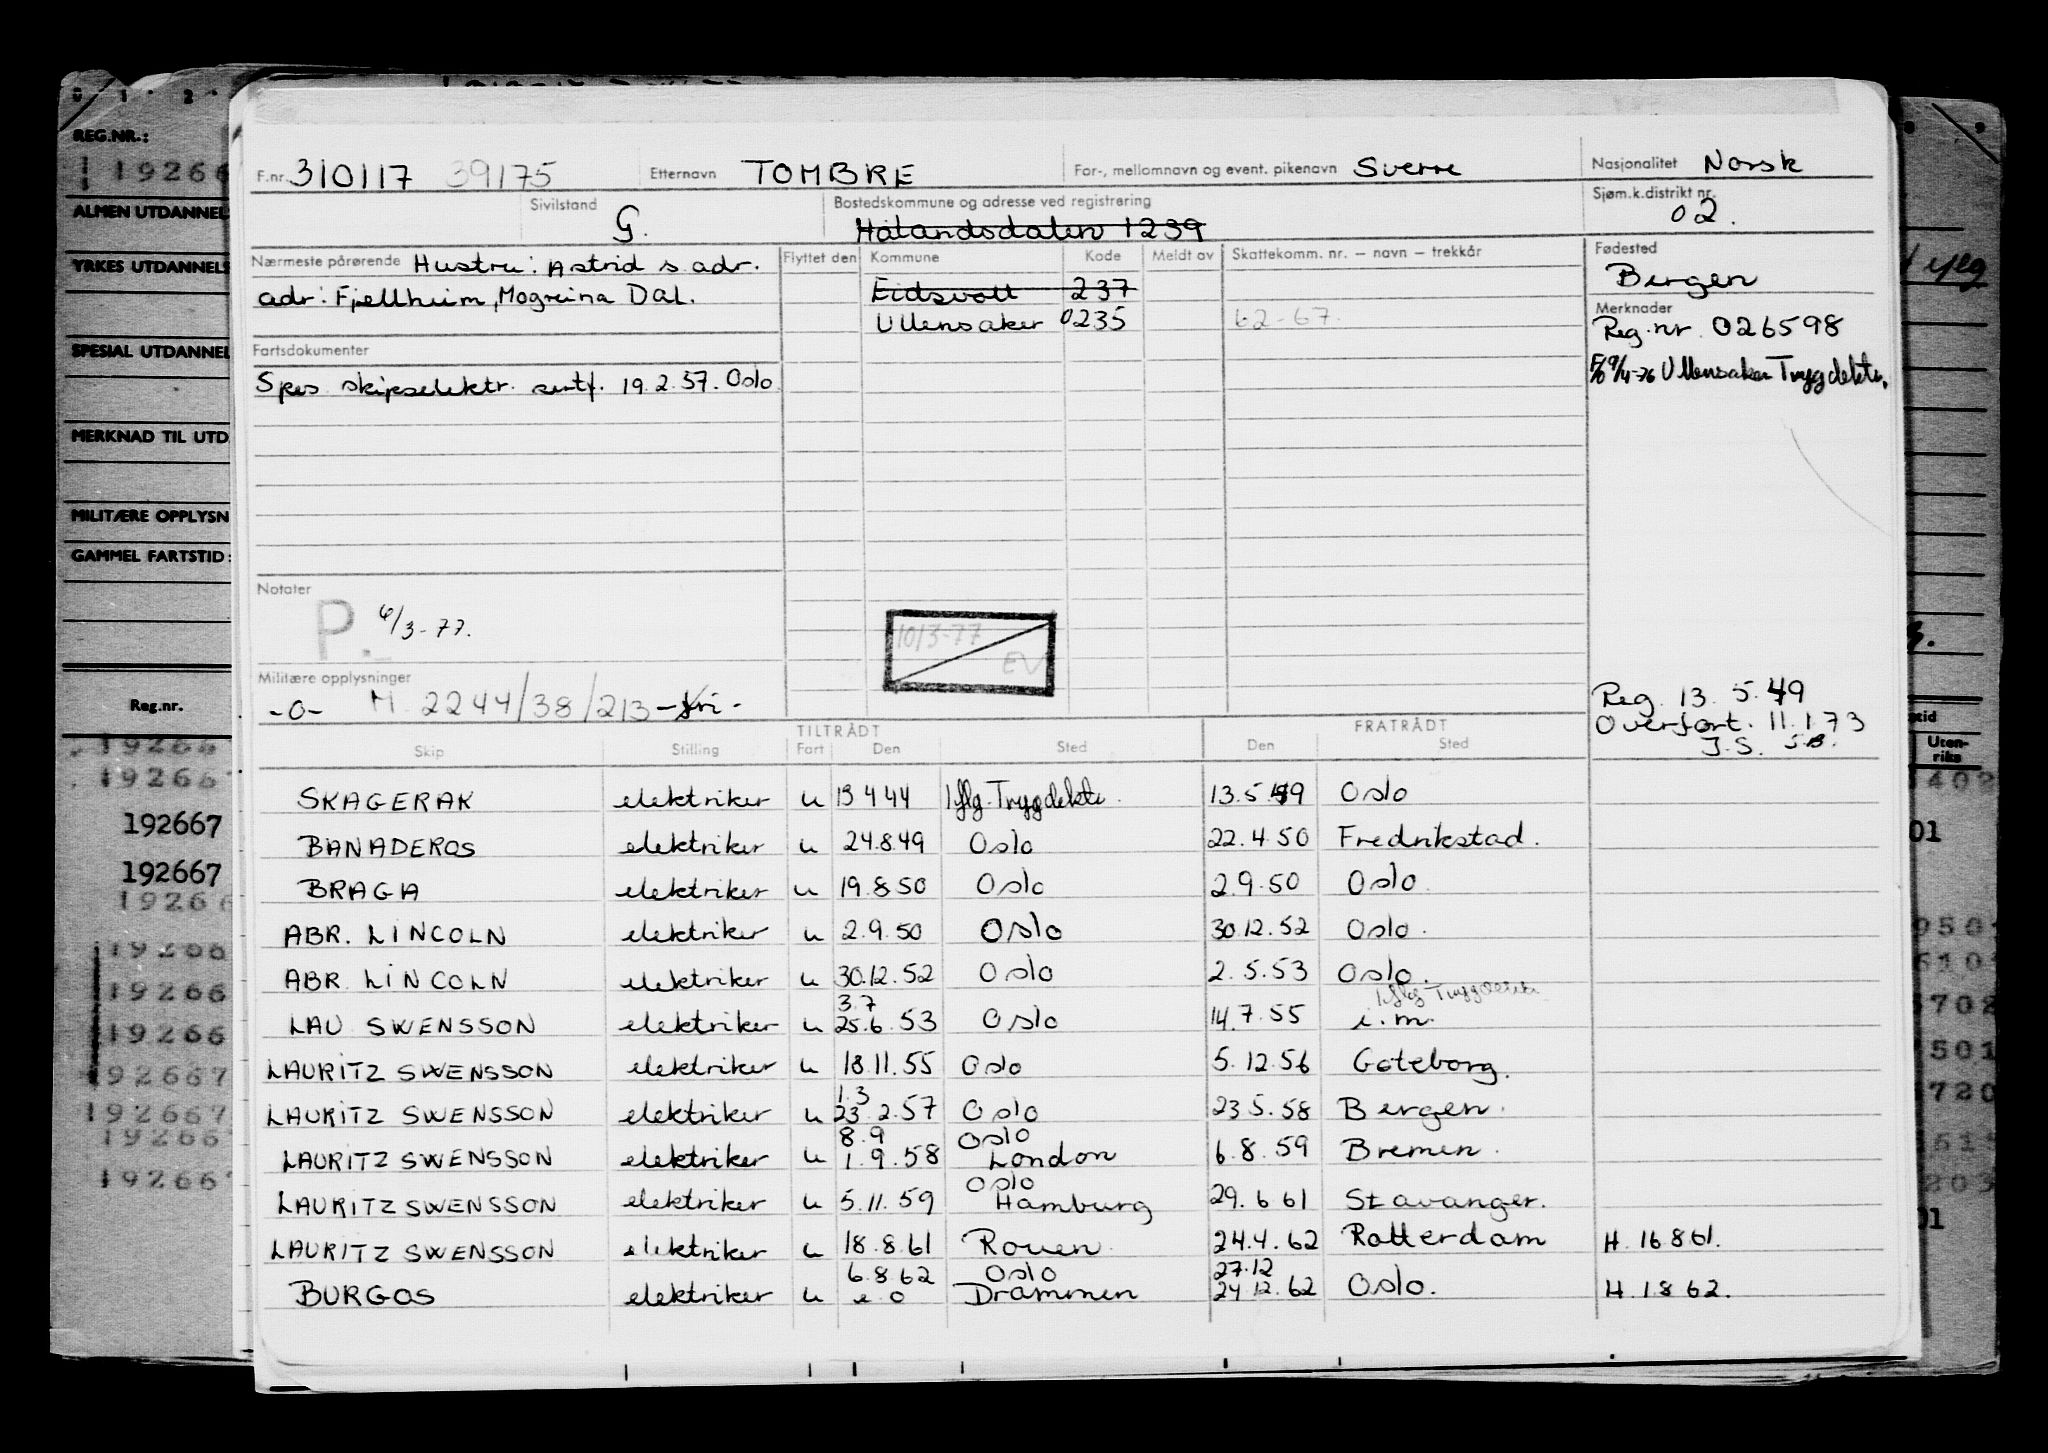 REG.NR.:
19266
ALMEN UTDANNEL
YRKES UTDANNELS
SPESIAL UTDANNEL
MERKNAD TIL UTD
MILITÆRE OPPLYSN
GAMMEL FARTSTID:
Reg.nr.
192667
192667
F.nr. 310117 39175 Etternavn TOMBRE For-, mellomnavn og event. pikenavn Sverre Nasjonalitet Norsk
Sivilstand G. Bostedskommune og adresse ved registrering Hålandsdalen 1239 Sjøm.k.distrikt nr. 02.
Nærmeste pårørende Hustru: Astrid s. adr. Flyttet den Kommune Kode Meldt av Skattekomm. nr. – navn – trekkår Fødested
adr: Fjellheim, Mogreina Dal. Eidsvoll 237 Bergen
Ullensaker 0235 62-67. Merknader
Reg.nr. 026598
Fartsdokumenter
9/4-76 Ullensaker Trygdekt.
Spes. skipselektr. sertf. 19.2.57. Oslo
Notater
P. 6/3-77.
10/3-77
EV
Militære opplysninger
-0- M. 2244/38/213-
Reg. 13.5.49
Overført. 11.1.73
J.S. S.B.
TILTRÅDT FRATRÅDT
Skip Stilling Fart Den Sted Den Sted
SKAGERAK elektriker u 13 4 44 iflg. Trygdekt. 13.5.49 Oslo
BANADEROS elektriker u 24.8.49 Oslo 22.4.50 Fredrikstad.
BRAGA elektriker u 19.8.50 Oslo 2.9.50 Oslo.
ABR. LINCOLN elektriker u 2.9.50 Oslo 30.12.52 Oslo.
ABR. LINCOLN elektriker u 30.12.52 Oslo 2.5.53 Oslo.
3.7 iflg
LAU SWENSSON elektriker u 25.6.53 Oslo 14.7.55 i.m.
LAURITZ SWENSSON elektriker u 18.11.55 Oslo 5.12.56 Göteborg.
1.3
LAURITZ SWENSSON elektriker u 23.2.57 Oslo 23.5.58 Bergen.
8.9 Oslo
LAURITZ SWENSSON elektriker u 1.9.58 London 6.8.59 Bremen.
Oslo
LAURITZ SWENSSON elektriker u 5.11.59 Hamburg 29.6 61 Stavanger.
LAURITZ SWENSSON elektriker u 18.8.61 Rouen 24.4.62 Rotterdam H. 16861.
6.8.62 Oslo 27.12
BURGOS elektriker u e.o Drammen 24.12.62 Oslo. H. 1862.